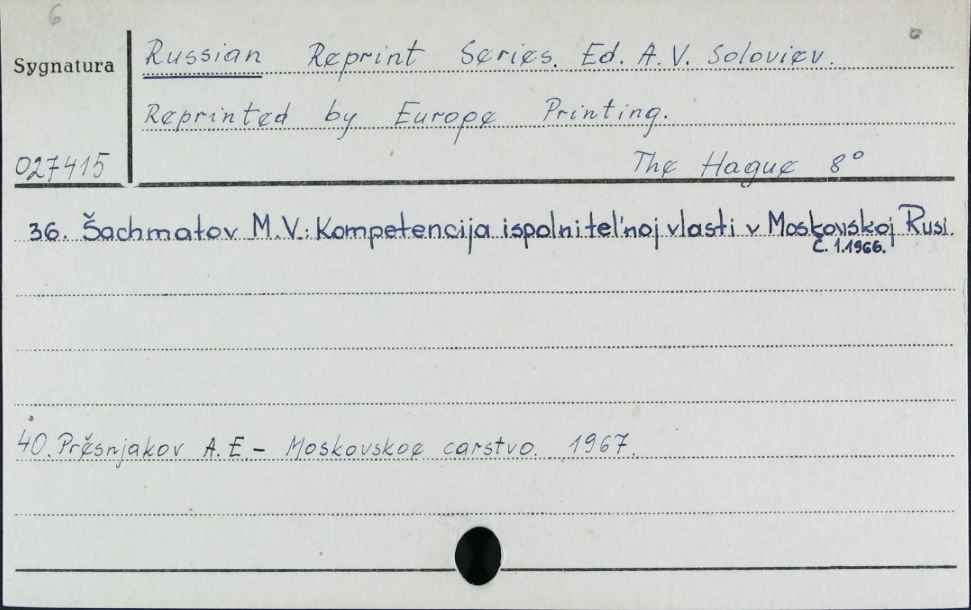 6
Sygnatura
Russian Reprint Series. Ed. A. V. Soloviev.
Reprinted by Europe Printing.
027415
The Hague 8°
36. Šachmatov M.V.: Kompetencija ispolnitel'noj vlasti v Moskovskoj Rusi.
Č. 1.1966.
40. Prěsnjakov A. E. - Moskovskoe carstvo. 1967.